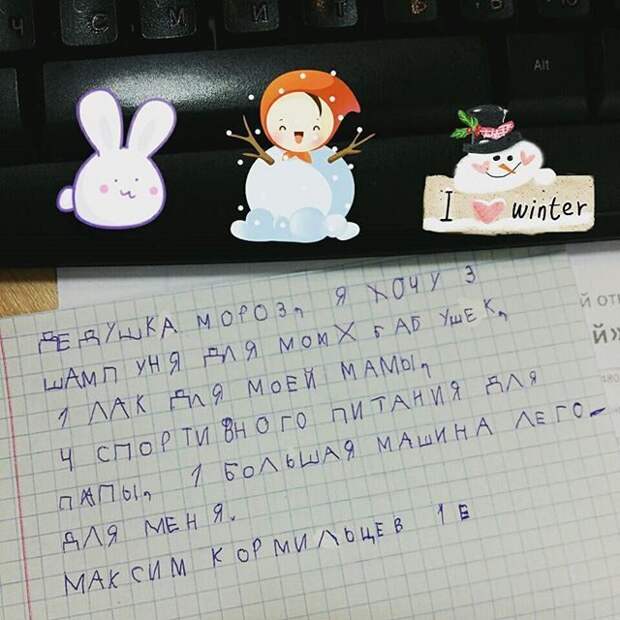 Ч С М И Т Ь Б Ю
Alt
I winter
й отв
й»
ДЕДУШКА МОРОЗ, Я ХОЧУ 3
ШАМПУНЯ ДЛЯ МОИХ БАБУШЕК,
1 ЛАК ДЛЯ МОЕЙ МАМЫ,
4 СПОРТИВНОГО ПИТАНИЯ ДЛЯ
ПАПЫ, 1 БОЛЬШАЯ МАШИНА ЛЕГО
ДЛЯ МЕНЯ.
МАКСИМ КОРМИЛЬЦЕВ 1 Е